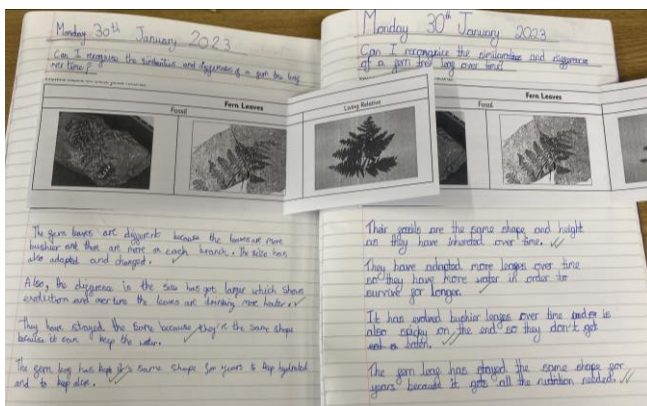 Monday 30th January 2023
Can I recognise the similarities and differences of a fern
over time?
Fern Leaves
Fossil
Living Relative
The fern leaves are different because the leaves are more
bushier and there are more on each branch. The has
also adapted and changed.
Also, the difference is the size has got larger which shows
evolution and the leaves are drinking more water.
They have stayed the same because they're the same shape
because it can keep the water.
The fern has kept it's same shape for years to keep hydrated
and to keep alive.
Monday 30th January 2023
Can I recongnise the similarities and differences
of a fern over time?
Fern Leaves
Fossil
Their fossils are the same shape and height
as they have inherited over time.
They have adapted more leafes over time
so they have more water in order to
survive for longer.
It has evolved bushier leafes over time is
also spicky on the end so they don't get
eaten.
The fern has stayed the same shape for
years because it gets all the nutrition needed.